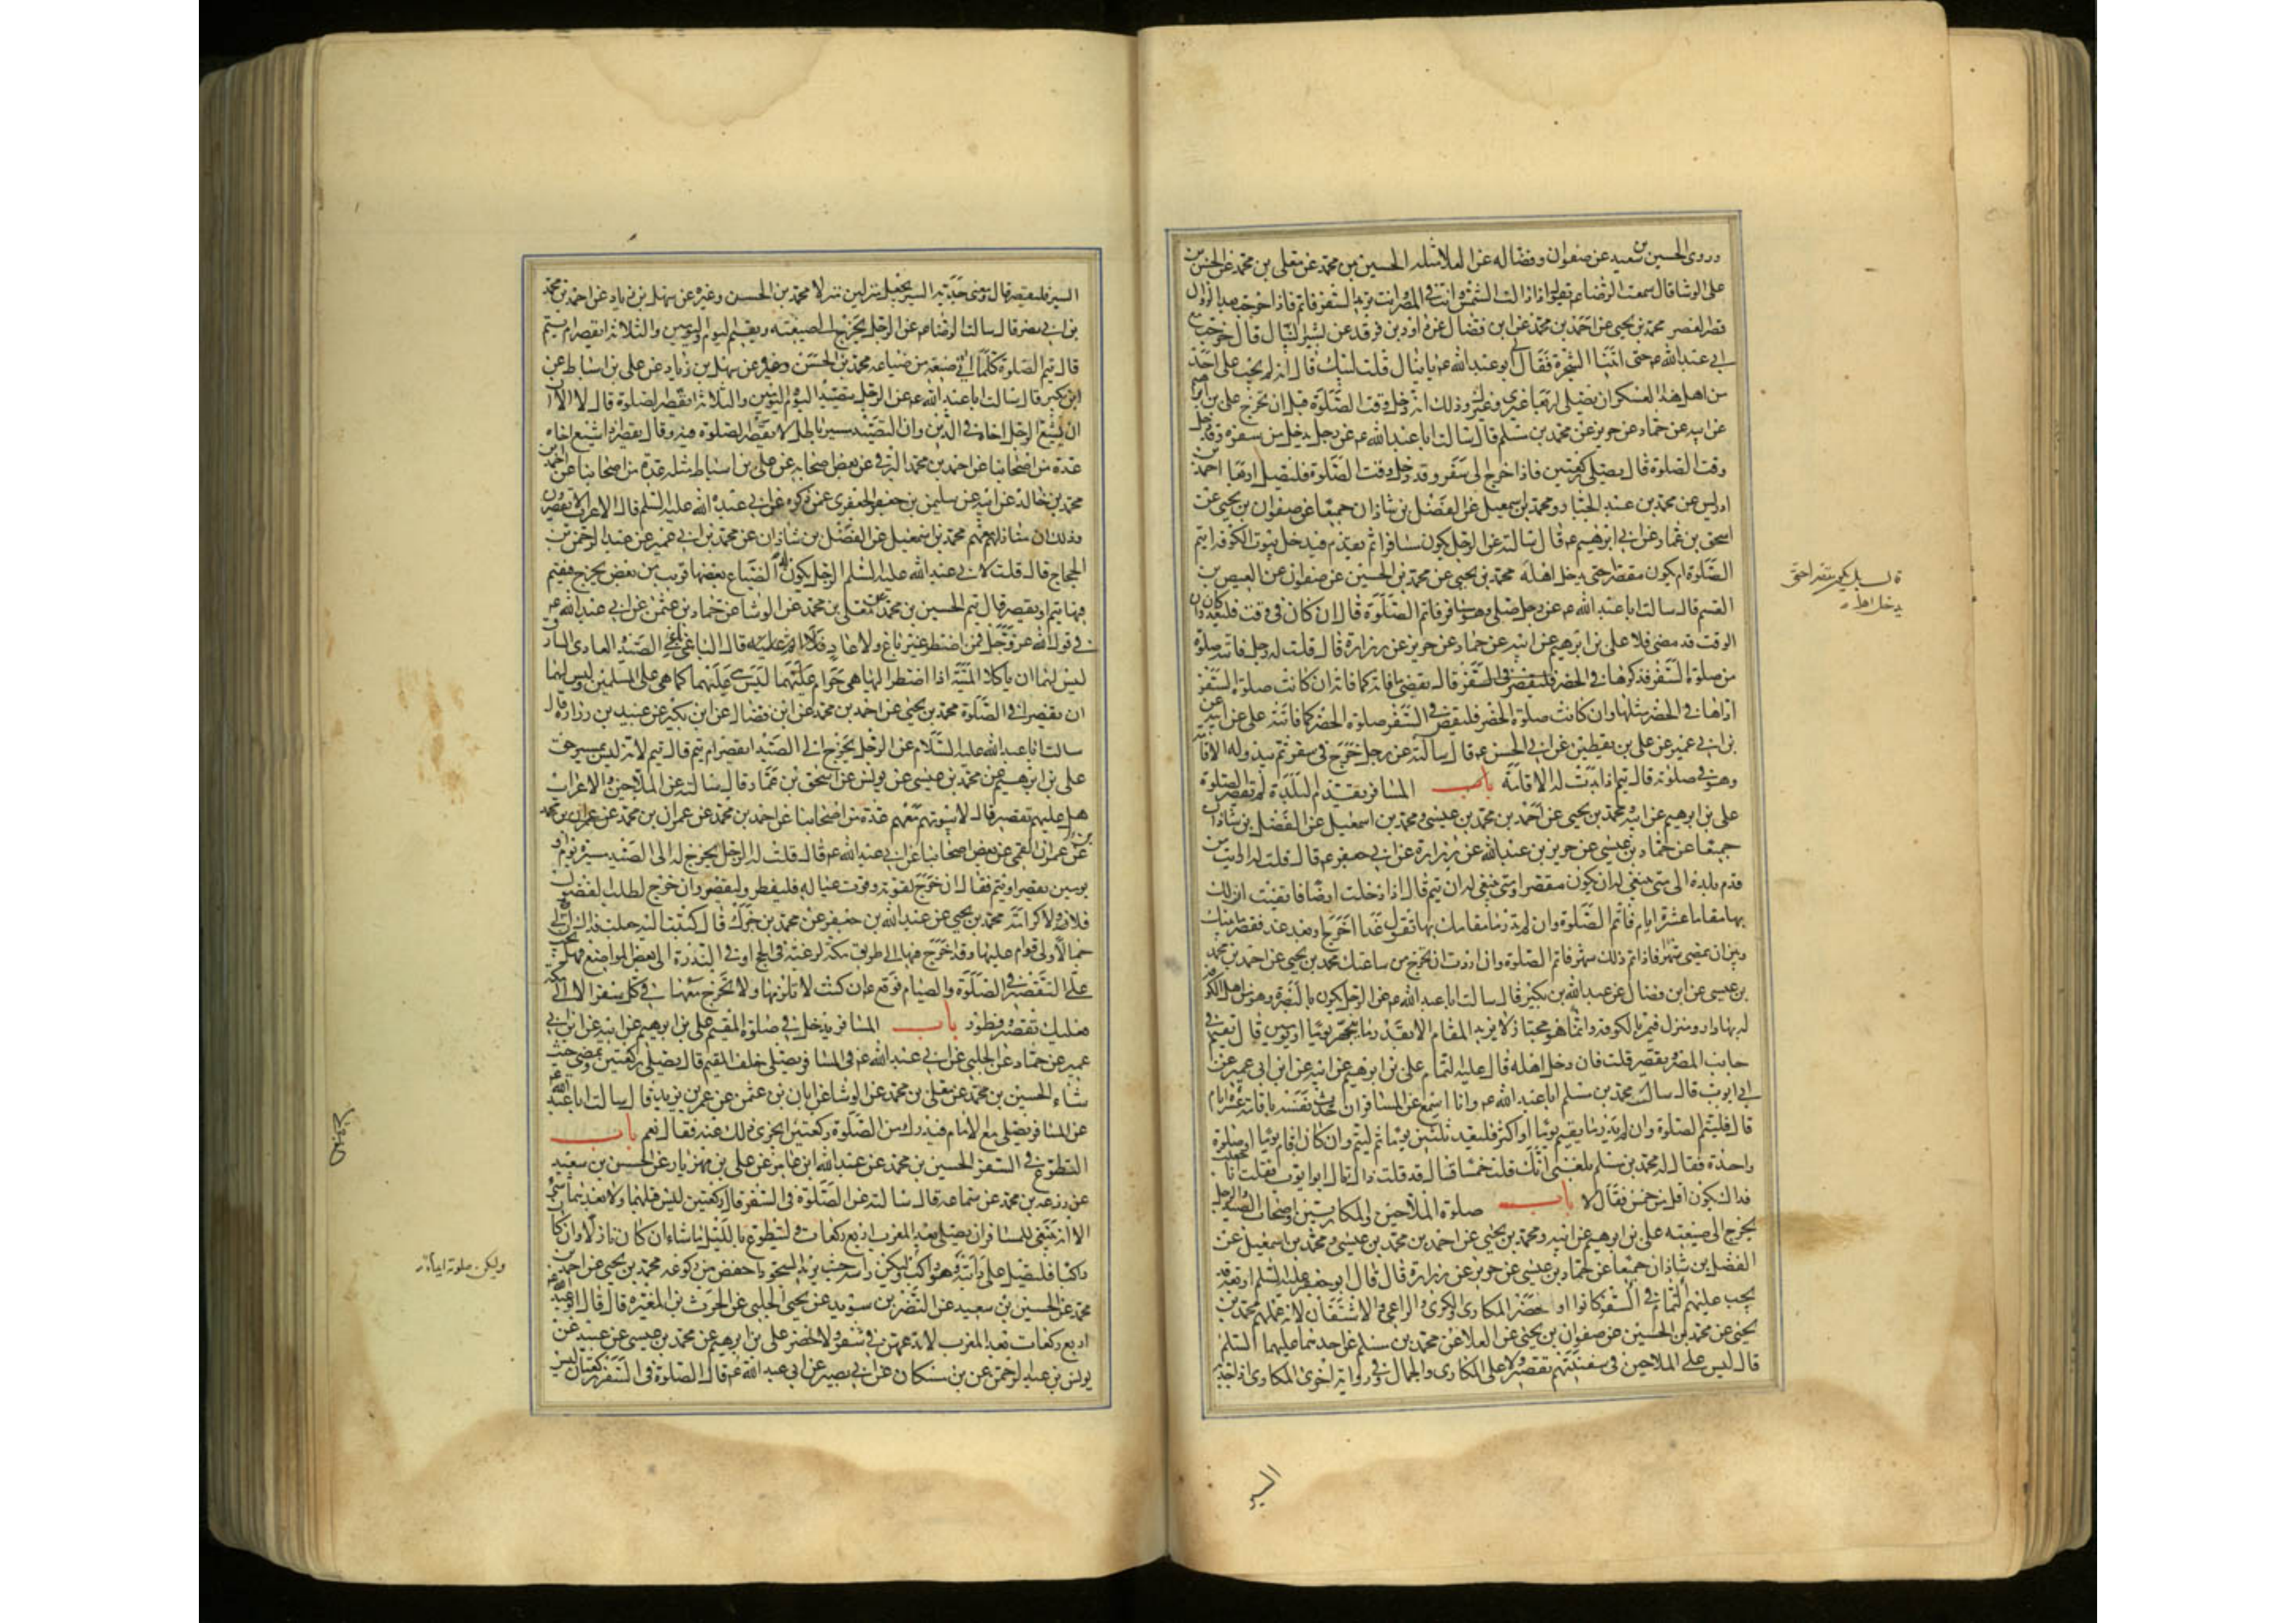 وروى الحسين بن سعيد عن صفوان وفضاله عن العلا مثله الحسين بن محمد عن معلى بن محمد عن الحسن بن
على الوشا قال سمعت الرضا ع يقول اذا زالت الشمس وانت في المصر وانت تريد السفر فاتم فاذا خرجت بعد الزوال
قصر العصر محمد بن يحيى عن احمد بن محمد عن ابن فضال عن داود بن فرقد عن بشير النبال قال خرجت مع
ابي عبد الله ع حتى اتينا الشجرة فقال لي ابو عبد الله ع يا نبال قلت لبيك قال انه لم يجب على احد
من اهل هذا العسكر ان يصلى اربعا غيرى وغيرك وذلك انه دخل وقت الصلوة قبل ان نخرج على بن ابرهيم
عن ابيه عن حماد عن حريز عن محمد بن مسلم قال سالت ابا عبد الله ع عن رجل يدخل من سفره وقد دخل
وقت الصلوة قال يصلى ركعتين فاذا خرج الى سفر وقد دخل وقت الصلوة فليصل اربعا احمد بن
ادريس عن محمد بن عبد الجبار ومحمد بن اسمعيل عن الفضل بن شاذان جميعا عن صفوان بن يحيى عن
اسحق بن عمار عن ابي ابرهيم ع قال سالته عن الرجل يكون مسافرا ثم يقدم فيدخل بيوت الكوفه ايتم
الصلوة ام يكون مقصرا حتى يدخل اهله محمد بن يحيى عن محمد بن الحسين عن صفوان عن العيص بن
القسم قال سالت ابا عبد الله ع عن رجل صلى وهو مسافر فاتم الصلوة قال ان كان في وقت فليعد وان كان
الوقت قد مضى فلا على بن ابرهيم عن ابيه عن حماد عن حريز عن زرارة قال قلت له رجل فاتته صلوة
من صلوة السفر فذكرها في الحضر قال يقضى ما فاته كما فاته ان كانت صلوة السفر
اداها في الحضر مثلها وان كانت صلوة الحضر فليقض في السفر صلوة الحضر كما فاتته على عن ابيه عن
بن ابي عمير عن على بن يقطين عن ابي الحسن ع قال سالته عن رجل خرج في سفر ثم يبدو له الاقامة
وهو في صلوته قال يتم اذا بدت له الاقامة باب المسافر يقدم البلدة لم يقصر الصلوة
على بن ابرهيم عن ابيه ومحمد بن يحيى عن احمد بن محمد بن عيسى ومحمد بن اسمعيل عن الفضل بن شاذان
جميعا عن حماد بن عيسى عن حريز بن عبد الله عن زرارة عن ابي جعفر ع قال قلت له ارايت من
قدم بلدة الى متى ينبغى له ان يكون مقصرا ومتى ينبغى له ان يتم قال اذا دخلت ارضا فايقنت ان لك
بها مقاما عشرة ايام فاتم الصلوة وان لم تدر ما مقامك بها تقول غدا اخرج او بعد غد فقصر ما بينك
وبين ان يمضى شهر فاذا تم ذلك شهر فاتم الصلوة وان اردت ان تخرج من ساعتك محمد بن يحيى عن احمد بن محمد
بن عيسى عن ابن فضال عن عبد الله بن بكير قال سالت ابا عبد الله ع عن الرجل يكون بالبصرة وهو من اهل الكوفة
له بها دار ومنزل فيمر بالكوفة وانما هو مجتاز لا يريد المقام الا بقدر ما يتجهز يوما او يومين قال يقيم في
جانب المصر ويقصر قلت فان دخل اهله قال عليه التمام على بن ابرهيم عن ابيه عن ابن ابي عمير عن
ابي ايوب قال سال محمد بن مسلم ابا عبد الله ع وانا اسمع عن المسافر ان حدث نفسه باقامة عشرة ايام
قال فليتم الصلوة وان لم يدر ما يقيم يوما او اكثر فليعد ثلثين يوما ثم ليتم وان كان اقام يوما او صلوة
واحدة فقال له محمد بن مسلم بلغنى انك قلت خمسا فقال قد قلت ذاك قال ابو ايوب فقلت انا جعلت
فداك يكون اقل من خمس فقال لا باب صلوة الملاحين والمكاريين واصحاب الصيد والرجل
يخرج الى ضيعته على بن ابرهيم عن ابيه ومحمد بن يحيى عن احمد بن محمد بن عيسى ومحمد بن اسمعيل عن
الفضل بن شاذان جميعا عن حماد بن عيسى عن حريز عن زرارة قال قال ابو جعفر عليه السلم اربعة قد
يجب عليهم التمام في السفر كانوا او حضر المكارى والكرى والراعى والاشتقان لانه عملهم محمد بن
يحيى عن محمد بن الحسين عن صفوان بن يحيى عن العلا عن محمد بن مسلم عن احدهما عليهما السلم
قال ليس على الملاحين في سفينتهم تقصير ولا على المكارى والجمال وفي رواية اخرى المكارى اذا جد به
يدخل اهله
السير
السير فليقصر قال ومعنى جد به السير يجعل منزلين منزلا محمد بن الحسن وغيره عن سهل بن زياد عن احمد بن محمد
بن ابي نصر قال سالت الرضا ع عن الرجل يخرج الى ضيعته ويقيم اليوم واليومين والثلاثة ايقصر ام يتم
قال يتم الصلوة كلما اتى ضيعة من ضياعه محمد بن الحسن وغيره عن سهل بن زياد عن على بن اسباط عن
ابن بكير قال سالت ابا عبد الله ع عن الرجل يتصيد اليوم واليومين والثلاثة ايقصر الصلوة قال لا الا
ان يشيع الرجل اخاه في الدين وان التصيد مسير باطل لا يقصر الصلوة فيه وقال يقصر اذا شيع اخاه
عدة من اصحابنا عن احمد بن محمد البرقى عن بعض اصحابه عن على بن اسباط مثله عدة من اصحابنا عن احمد بن
محمد بن خالد عن ابيه عن سليمن بن جعفر الجعفرى عمن ذكره عن ابي عبد الله عليه السلم قال الاعراب لا يقصرون
وذلك ان منازلهم معهم محمد بن اسمعيل عن الفضل بن شاذان عن محمد بن ابي عمير عن عبد الرحمن بن
الحجاج قال قلت لابي عبد الله عليه السلم الرجل يكون له الضياع بعضها قريب من بعض يخرج فيقيم
فيها يتم او يقصر قال يتم الحسين بن محمد عن معلى بن محمد عن الوشا عن حماد بن عثمن عن ابي عبد الله ع
في قول الله عز وجل فمن اضطر غير باغ ولا عاد فلا اثم عليه قال الباغى باغى الصيد والعادى السارق
ليس لهما ان ياكلا الميتة اذا اضطرا اليها هى حرام عليهما ليس هى عليهما كما هى على المسلمين وليس لهما
ان يقصرا في الصلوة محمد بن يحيى عن احمد بن محمد عن ابن فضال عن ابن بكير عن عبيد بن زرارة قال
سالت ابا عبد الله عليه السلام عن الرجل يخرج الى الصيد ايقصر ام يتم قال يتم لانه ليس بمسير حق
على بن ابرهيم عن محمد بن عيسى عن يونس عن اسحق بن عمار قال سالته عن الملاحين والاعراب
هل عليهم تقصير قال لا بيوتهم معهم عدة من اصحابنا عن احمد بن محمد عن عمران بن محمد عن عمران بن محمد
عن عمران القمى عن بعض اصحابنا عن ابي عبد الله ع قال قلت له الرجل يخرج الى الصيد مسيرة يوم او
يومين يقصر او يتم فقال ان خرج لقوته وقوت عياله فليفطر وليقصر وان خرج لطلب الفضول
فلا ولا كرامة محمد بن يحيى عن عبد الله بن جعفر عن محمد بن جزك قال كتبت اليه جعلت فداك ان لى
جمالا ولى قوام عليها وقد اخرج فيها الى طريق مكة لرغبة في الحج او في الندرة الى بعض المواضع فهل يجب
على التقصير في الصلوة والصيام فوقع ع ان كنت لا تلزمها ولا تخرج معها في كل سفر الا الى مكة
فعليك تقصير وفطور باب المسافر يدخل في صلوة المقيم على بن ابرهيم عن ابيه عن ابن ابي
عمير عن حماد عن الحلبى عن ابي عبد الله ع في المسافر يصلى خلف المقيم قال يصلى ركعتين ويمضى حيث
شاء الحسين بن محمد عن معلى بن محمد عن الوشا عن ابان بن عثمن عن عمر بن يزيد قال سالت ابا عبد الله ع
عن المسافر يصلى مع الامام فيدرك من الصلوة ركعتين ايجزى ذلك عنه فقال نعم باب
التطوع في السفر الحسين بن محمد عن عبد الله ابن عامر عن على بن مهزيار عن الحسن بن سعيد
عن زرعه بن محمد عن سماعه قال سالته عن الصلوة في السفر قال ركعتين ليس قبلهما ولا بعدهما شئ
الا انه ينبغى للمسافر ان يصلى بعد المغرب اربع ركعات وليتطوع بالليل ما شاء ان كان نازلا وان كان
راكبا فليصل على دابته وهو راكب وليكن راسه حيث يريد السجود اخفض من ركوعه محمد بن يحيى عن احمد بن
محمد عن الحسين بن سعيد عن النضر بن سويد عن يحيى الحلبى عن الحرث بن المغيره قال قال ابو عبد الله ع
اربع ركعات بعد المغرب لا تدعهن في سفر ولا حضر على بن ابرهيم عن محمد بن عيسى عن
يونس بن عبد الرحمن عن بن مسكان عن ابي بصير عن ابي عبد الله ع قال الصلوة في السفر ركعتان ليس
وليكن صلوته ايماء